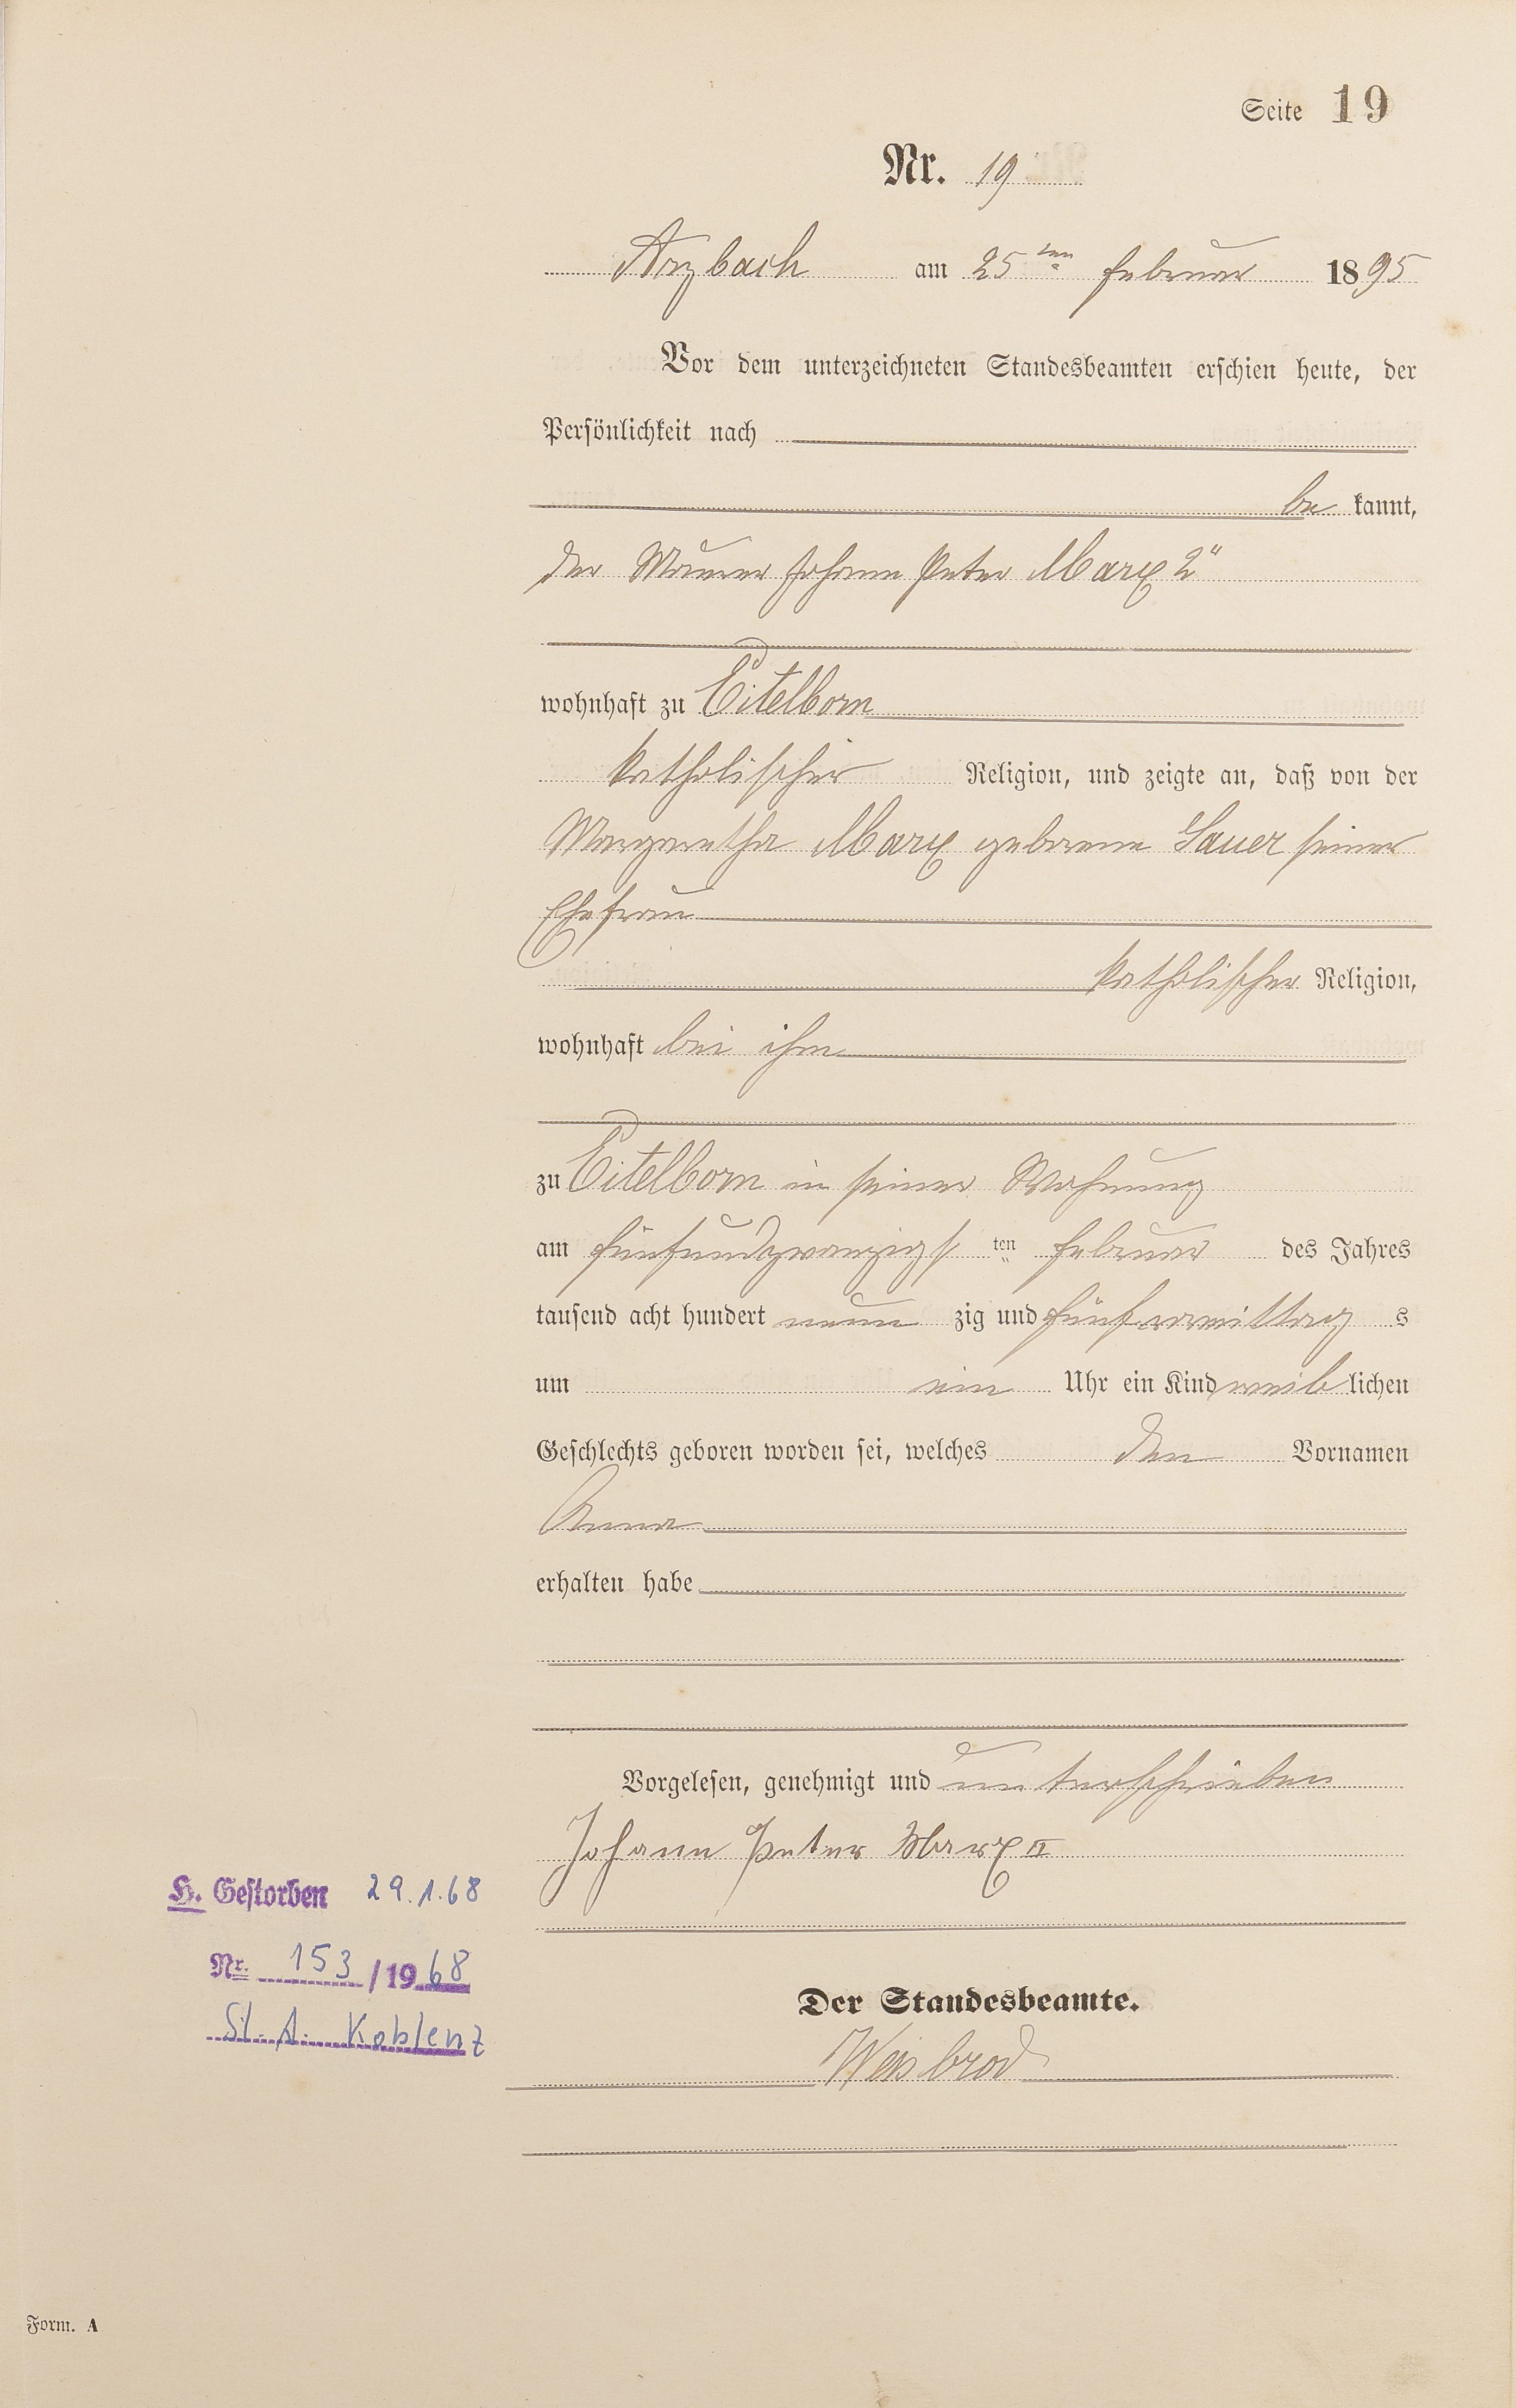 Seite 19
Nr. 19
Arzbach am 25ten Februar 1895
Vor dem unterzeichneten Standesbeamten erschien heute, der
Persönlichkeit nach
be kannt,
der Maurer Johann Peter Marx 2"
wohnhaft zu Eitelborn
katholischer Religion, und zeigte an, daß von der
Margaretha Marx geborene Sauer seiner
Ehefrau
katholischer Religion,
wohnhaft bei ihm
zu Eitelborn in seiner Wohnung
am fünfundzwanzigs ten Februar des Jahres
tausend acht hundert neun zig und fünf vormittag s
um ein Uhr ein Kind weib lichen
Geschlechts geboren worden sei, welches den Vornamen
Anna
erhalten habe
Vorgelesen, genehmigt und unterschrieben
Johann Peter Marx II
H. Gestorben 29.1.68
Nr. 153 / 1968
St. A. Koblenz
Der Standesbeamte.
Weisbrod
Form. A